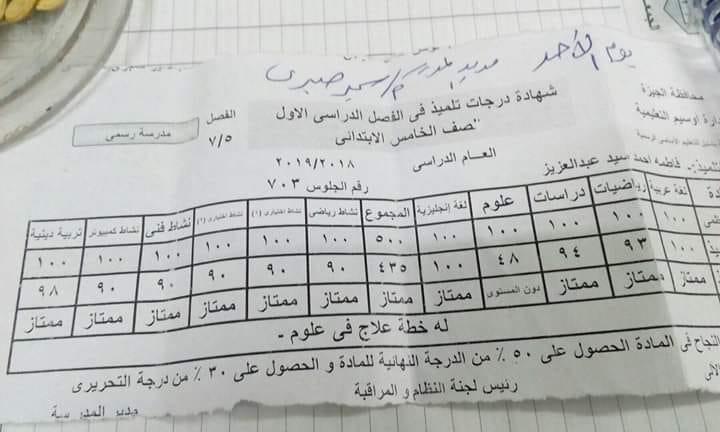 يوم الأحد مدير المدرسة / سمير صبرى
محافظة الجيزة
دارة اوسيم التعليمية
شهادة درجات تلميذ فى الفصل الدراسى الاول
"صف الخامس الابتدائى
الفصل
٧/٥
مدرسة رسمى
العام الدراسى ٢٠١٩/٢٠١٨
تلميذ:- فاطمه احمد سيد عبدالعزيز
رقم الجلوس ٧٠٣
دة لغة عربية رياضيات دراسات علوم لغة إنجليزية المجموع نشاط رياضى نشاط اختيارى (١) نشاط اختيارى (٢) نشاط فنى نشاط كمبيوتر تربية دينية
١٠٠ ١٠٠ ١٠٠ ١٠٠ ١٠٠ ٥٠٠ ١٠٠ ١٠٠ ١٠٠ ١٠٠ ١٠٠ ١٠٠
١٠٠ ٩٣ ٩٤ ٤٨ ١٠٠ ٤٣٥ ٩٠ ٩٠ ٩٠ ٩٠ ٩٠ ٩٨
ممتاز ممتاز ممتاز دون المستوى ممتاز ممتاز ممتاز ممتاز ممتاز ممتاز ممتاز ممتاز
له خطة علاج فى علوم -
النجاح فى المادة الحصول على ٥٠ ٪ من الدرجة النهائية للمادة و الحصول على ٣٠ ٪ من درجة التحريرى
رئيس لجنة النظام و المراقبة
مدير المدرسة